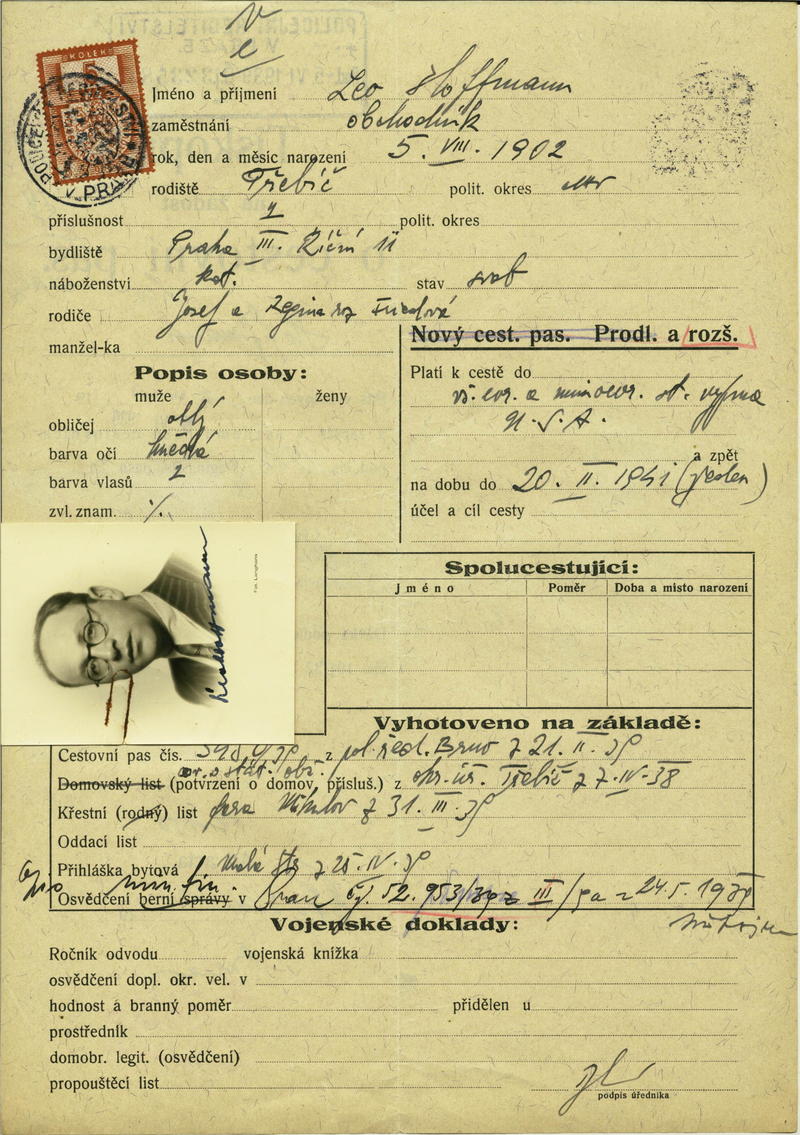 KOLEK
5
PRA
Jméno a příjmení Leo Hoffmann
zaměstnání obchodník
rok, den a měsíc narození 5. VIII. 1902
rodiště Třebíč polit. okres
příslušnost polit. okres
bydliště Praha III. Říční 11
náboženství kat. stav svob
rodiče Josef a Regina roz Friedová
manžel-ka
Nový cest. pas. Prodl. a rozš.
Popis osoby:
muže ženy
obličej oblý
barva očí hnědá
barva vlasů
zvl. znam. ·/.
Platí k cestě do
vš. evr. a mimoevr. st. vyjma
U.S.A.
a zpět
na dobu do 20. II. 1941 (jeden)
účel a cíl cesty
Fot. Langhans
Leo Hoffmann
Spolucestující:
Jméno Poměr Doba a místo narození
Vyhotoveno na základě:
Cestovní pas čís. z pol. řed. Brno z 21. II. 39
Domovský list (potvrzení o domov. přísluš.) z okr. úř. Třebíč z 7. IV. 38
Křestní (rodný) list z 31. III. 39
Oddací list
Přihláška bytová Malá Str z 25. IV. 39
Osvědčení berní správy v čj. 52.953/39 III/ 24.5. 1939
Vojenské doklady:
Ročník odvodu vojenská knížka
osvědčení dopl. okr. vel. v
hodnost a branný poměr přidělen u
prostředník
domobr. legit. (osvědčení)
propouštěcí list
podpis úředníka